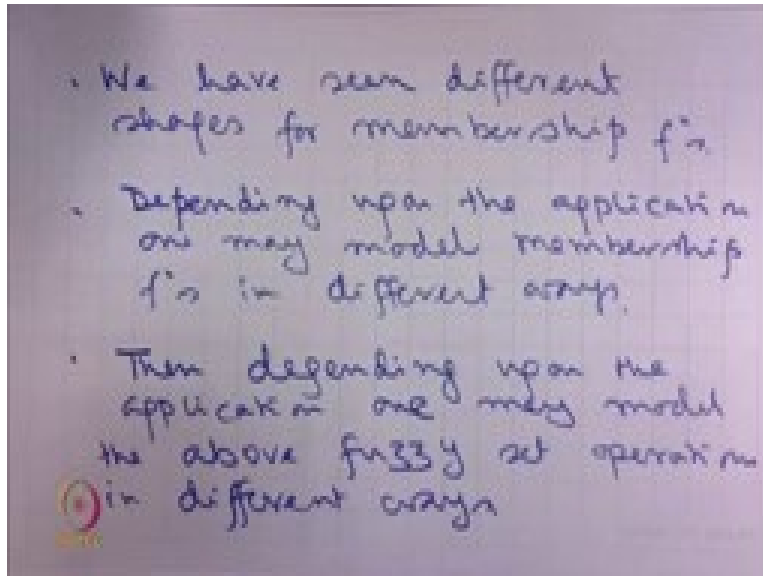 . We have seen different
shapes for membership fⁿs.
. Depending upon the application
one may model membership
fⁿs in different ways.
. Then depending upon the
application one may model
the above fuzzy set operation
in different ways